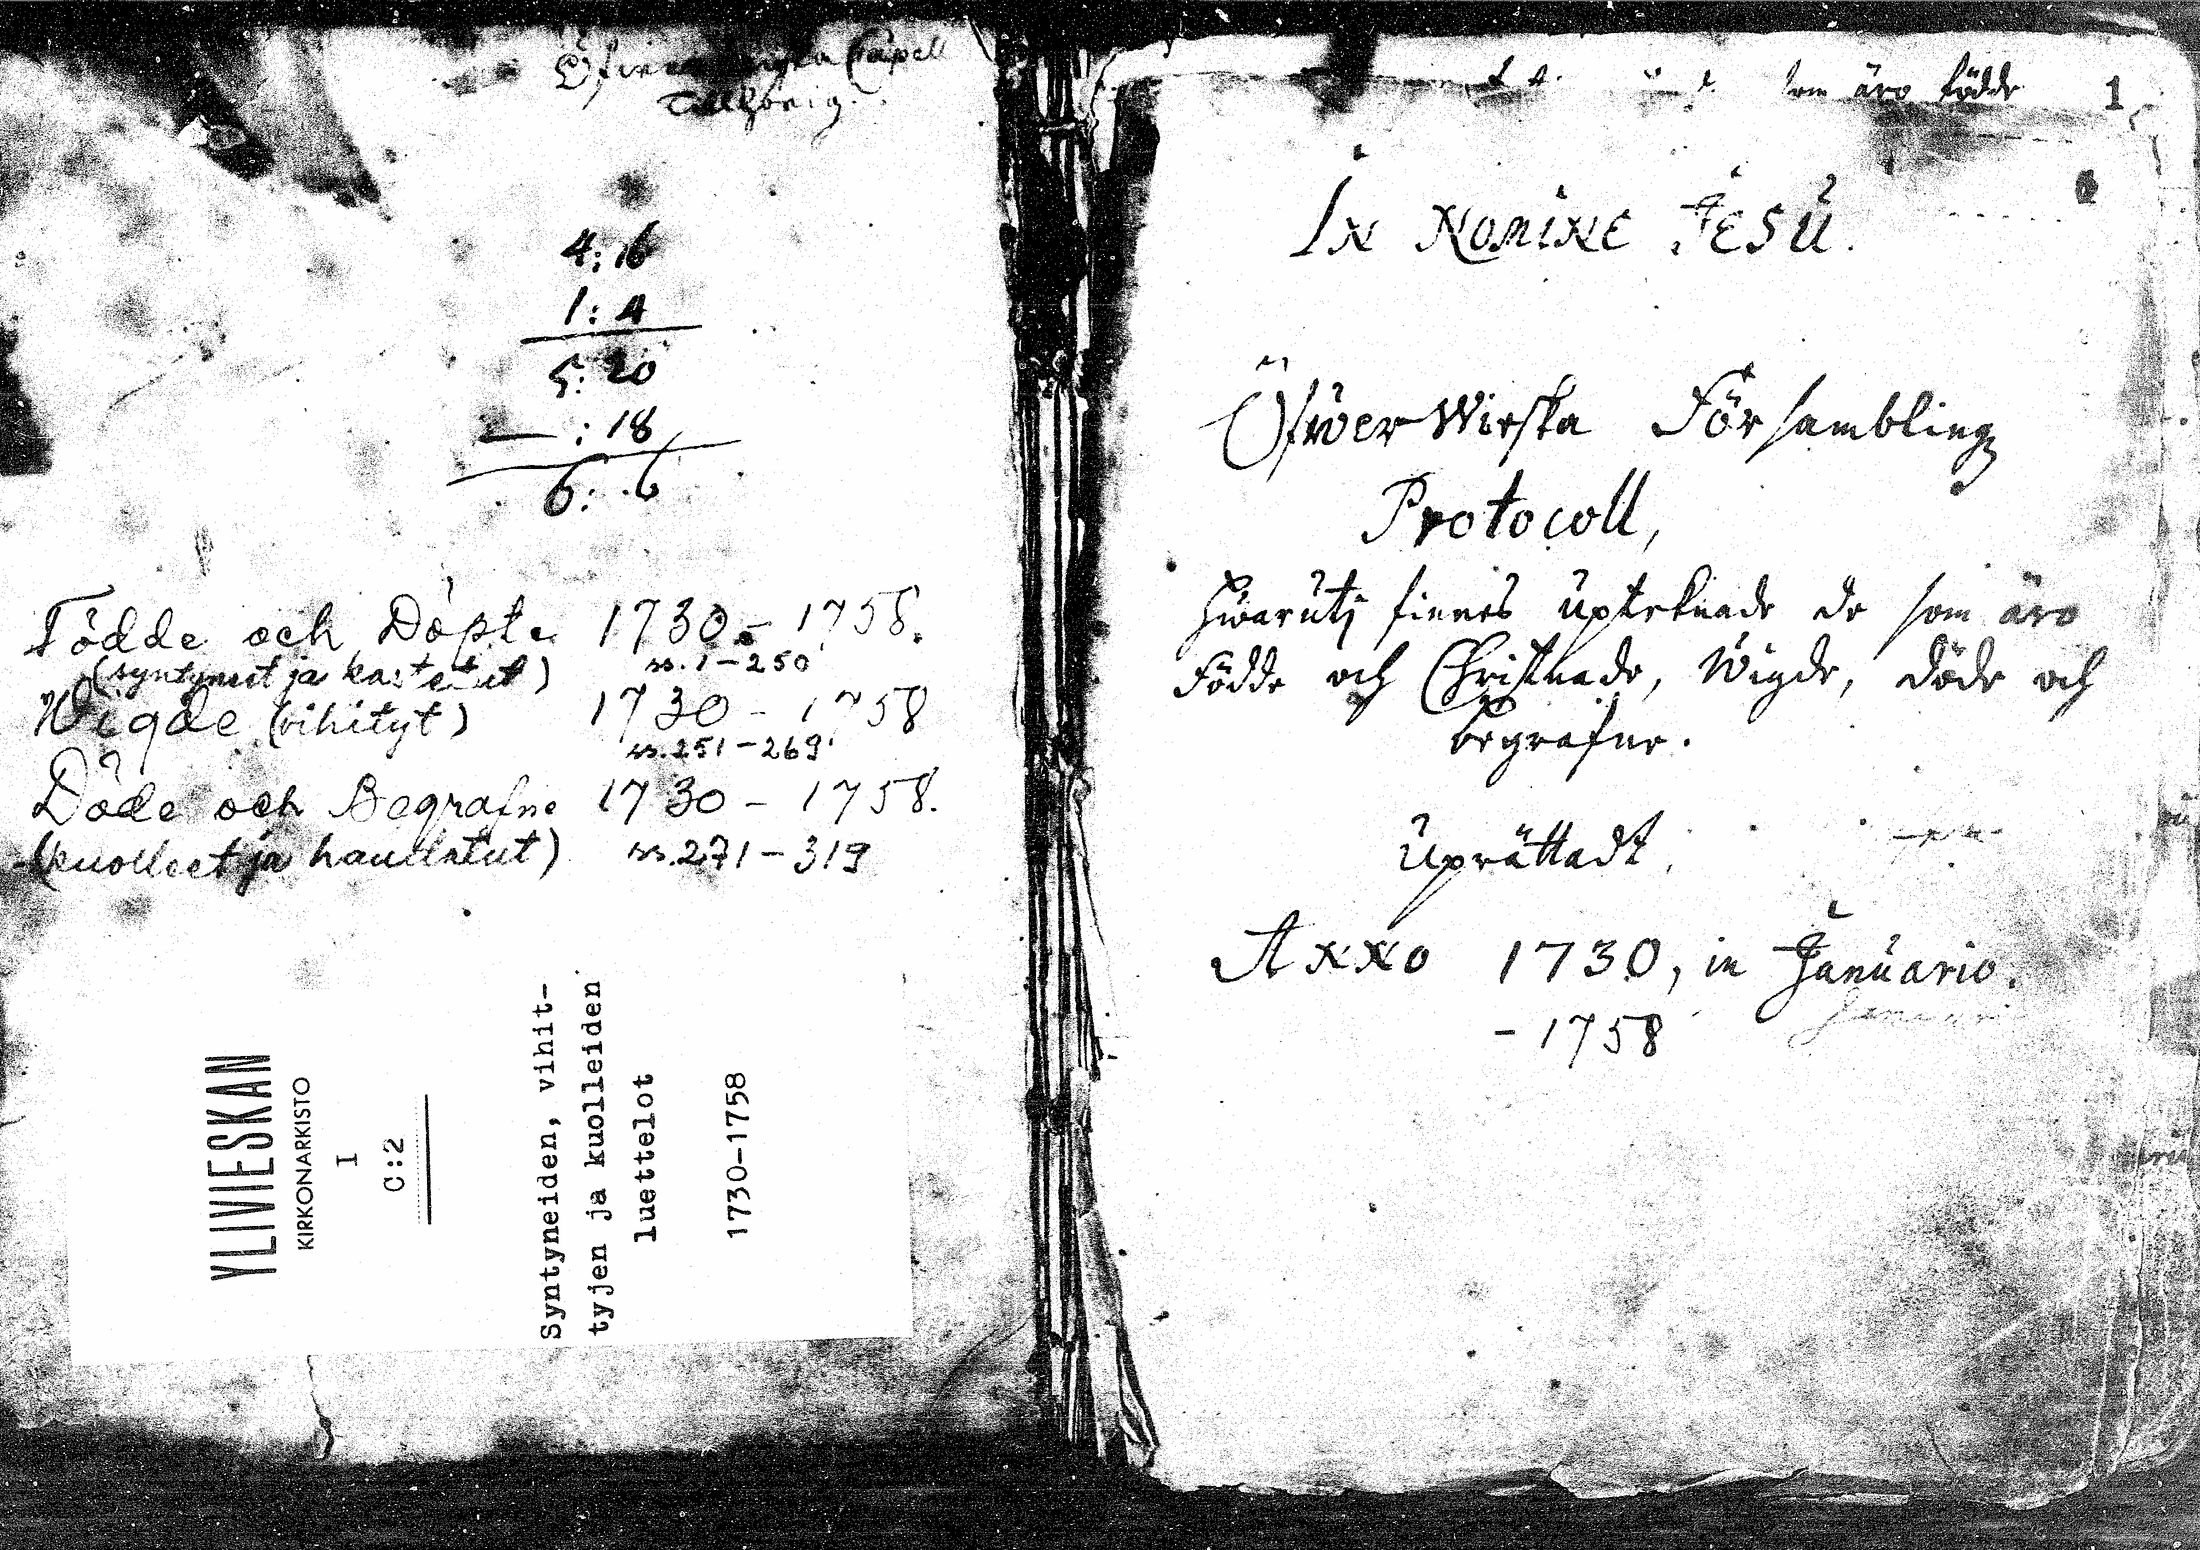 Capell
Tillhörig.
4: 16
1: 4
5: 20
— : 18
6: . 6
Födde och Döpte 1730 - 1758.
(syntyneet ja kastetut) ss. 1-250
Wigde (vihityt) 1730 - 1758
ss. 251-269
Döde och Begrafne 1730 - 1758.
(kuolleet ja haudatut) ss. 271-319
YLIVIESKAN
KIRKONARKISTO
I
C:2
Syntyneiden, vihit-
tyjen ja kuolleiden
luettelot
1730-1758
som äro födde 1
In Nomine Jesu.
Öfwer Wieska Försambling
Protocoll,
Hwarutj finnes upteknade de som äro
Födde och Christnade, Wigde, döde och
begrafne.
Uprättadt
Anno 1730, in Januario.
- 1758